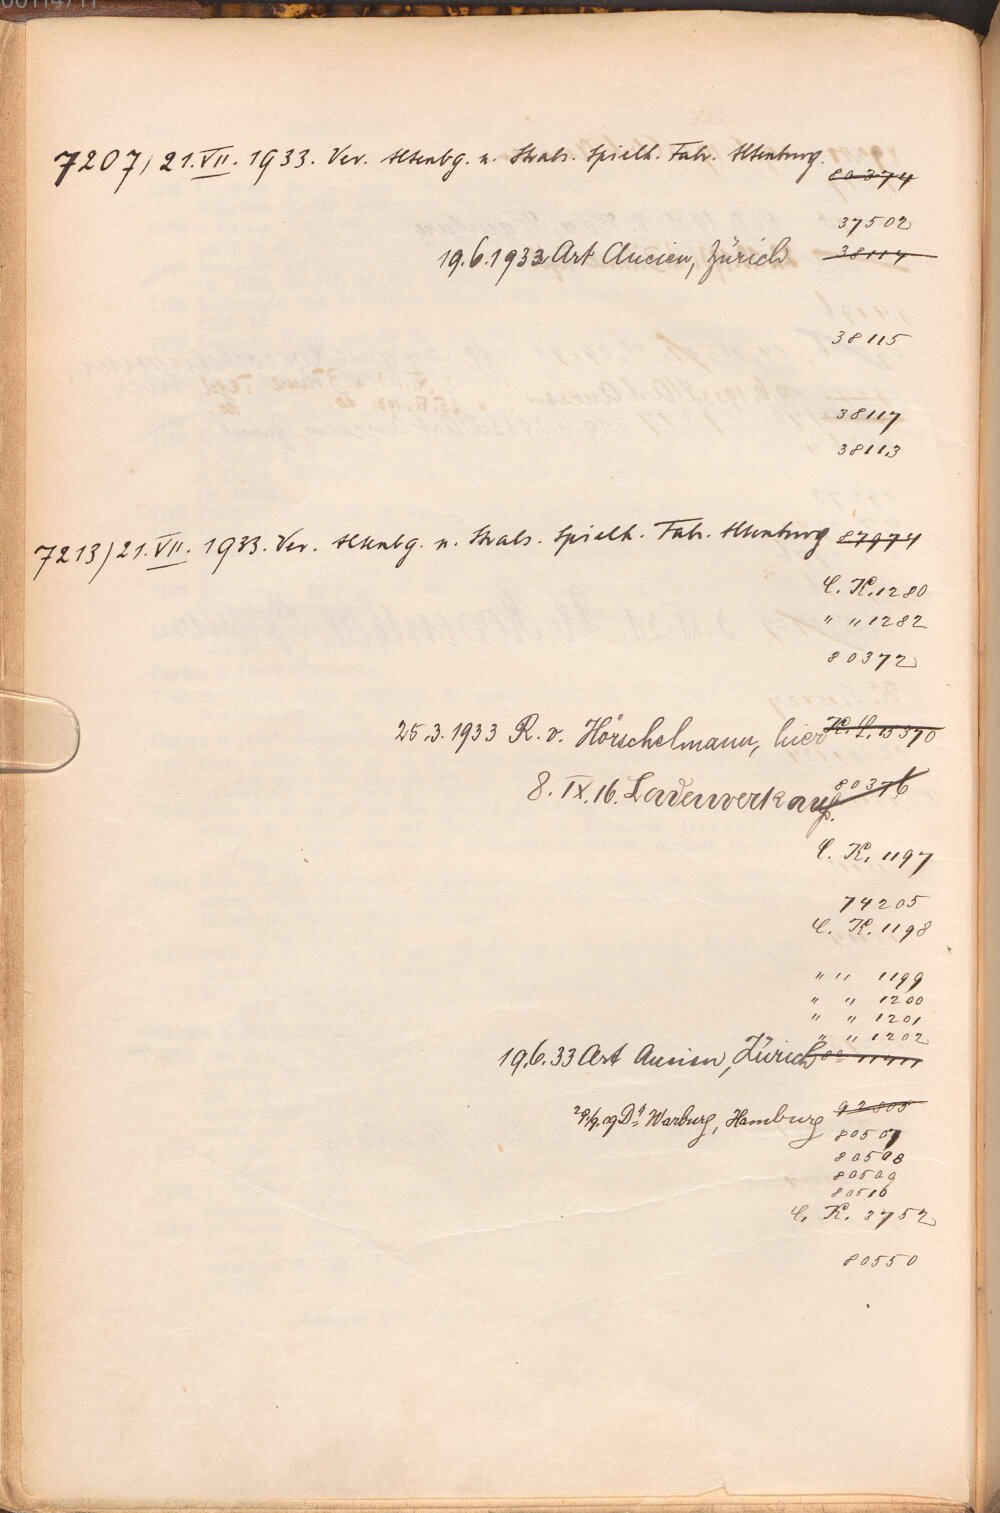 7207) 21. VII. 1933. Ver. Altenbg. u. Strals. Spielk. Fabr. Altenburg.
80374
37502
19.6.1933 Art Ancien, Zürich 38114
38115
38117
38113
7213) 21. VII. 1933. Ver. Altenbg. u. Strals. Spielk. Fabr. Altenburg 87974
C. K. 1280
" " 1282
80372
25.3.1933 R. v. Hörschelmann, hier K. L. 15370
8. IX. 16. Ladenverkauf. 80376
C. K. 1197
74205
C. K. 1198
" " 1199
" " 1200
" " 1201
" " 1202
19.6.33 Art Ancien, Zürich 11411
Dr Warburg, Hamburg 92805
80507
80508
80509
80510
C. K. 3752
80550